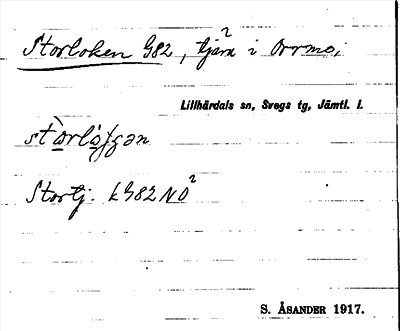 Storloken G82, tjärn² i Orrmo,
Lillhärdals sn, Svegs tg, Jämtl. l.
Stortj. k G82 NO²
S. ÅSANDER 1917.